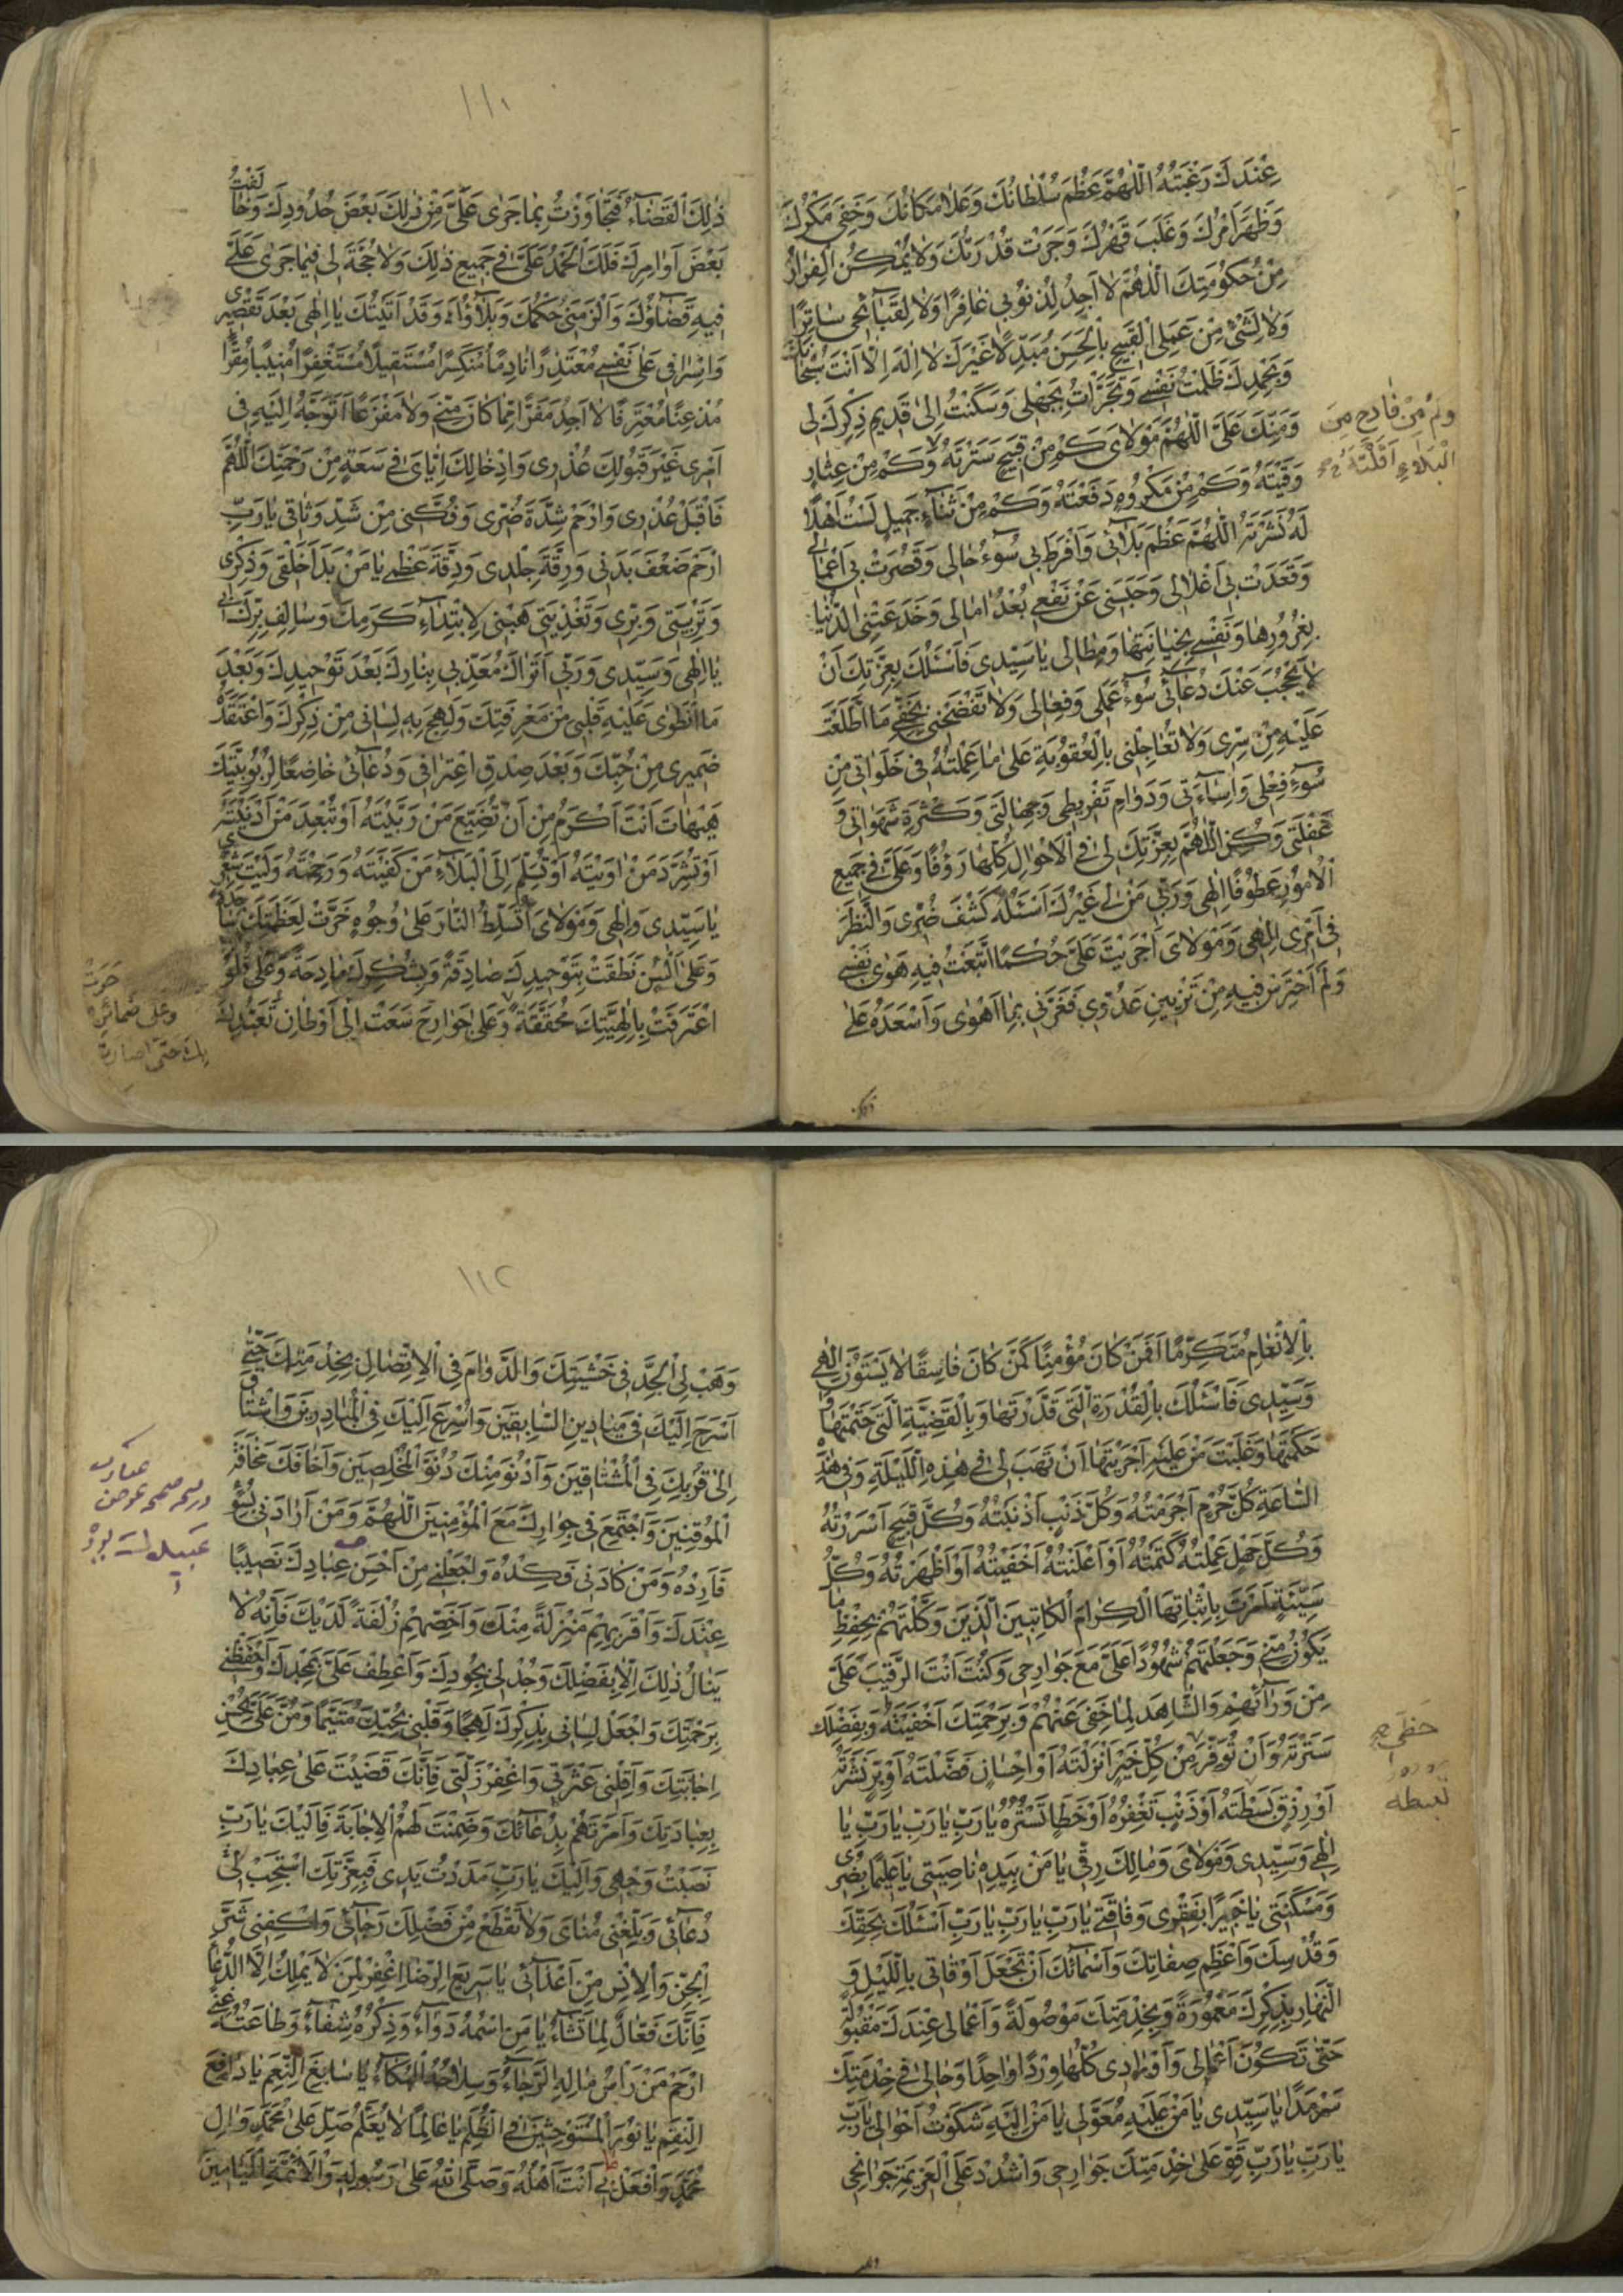 عِنْدَكَ رَغْبَتُهُ اَللّٰهُمَّ عَظُمَ سُلْطَانُكَ وَعَلَا مَكَانُكَ وَخَفِيَ مَكْرُكَ
وَظَهَرَ اَمْرُكَ وَغَلَبَ قَهْرُكَ وَجَرَتْ قُدْرَتُكَ وَلَا يُمْكِنُ الْفِرَارُ
مِنْ حُكُومَتِكَ اَللّٰهُمَّ لَا اَجِدُ لِذُنُوبِي غَافِرًا وَلَا لِقَبَائِحِي سَاتِرًا
وَلَا لِشَيْءٍ مِنْ عَمَلِيَ الْقَبِيحِ بِالْحَسَنِ مُبَدِّلًا غَيْرَكَ لَا اِلٰهَ اِلَّا اَنْتَ سُبْحَانَكَ
وَبِحَمْدِكَ ظَلَمْتُ نَفْسِي وَتَجَرَّأْتُ بِجَهْلِي وَسَكَنْتُ اِلٰى قَدِيمِ ذِكْرِكَ لِي
وَمَنِّكَ عَلَيَّ اَللّٰهُمَّ مَوْلَايَ كَمْ مِنْ قَبِيحٍ سَتَرْتَهُ وَكَمْ مِنْ عِثَارٍ
وَكَمْ مِنْ فَادِحٍ مِنَ
الْبَلَاءِ اَقَلْتَهُ
وَقَيْتَهُ وَكَمْ مِنْ مَكْرُوهٍ دَفَعْتَهُ وَكَمْ مِنْ ثَنَاءٍ جَمِيلٍ لَسْتُ اَهْلًا
لَهُ نَشَرْتَهُ اَللّٰهُمَّ عَظُمَ بَلَائِي وَاَفْرَطَ بِي سُوءُ حَالِي وَقَصُرَتْ بِي اَعْمَالِي
وَقَعَدَتْ بِي اَغْلَالِي وَحَبَسَنِي عَنْ نَفْعِي بُعْدُ اٰمَالِي وَخَدَعَتْنِي الدُّنْيَا
بِغُرُورِهَا وَنَفْسِي بِخِيَانَتِهَا وَمِطَالِي يَا سَيِّدِي فَاَسْئَلُكَ بِعِزَّتِكَ اَنْ
لَا يَحْجُبَ عَنْكَ دُعَائِي سُوءُ عَمَلِي وَفِعَالِي وَلَا تَفْضَحْنِي بِخَفِيِّ مَا اطَّلَعْتَ
عَلَيْهِ مِنْ سِرِّي وَلَا تُعَاجِلْنِي بِالْعُقُوبَةِ عَلٰى مَا عَمِلْتُهُ فِي خَلَوَاتِي مِنْ
سُوءِ فِعْلِي وَاِسَاءَتِي وَدَوَامِ تَفْرِيطِي وَجِهَالَتِي وَكَثْرَةِ شَهَوَاتِي وَ
غَفْلَتِي وَكُنِ اللّٰهُمَّ بِعِزَّتِكَ لِي فِي الْاَحْوَالِ كُلِّهَا رَؤُفًا وَعَلَيَّ فِي جَمِيعِ
الْاُمُورِ عَطُوفًا اِلٰهِي وَرَبِّي مَنْ لِي غَيْرُكَ اَسْئَلُهُ كَشْفَ ضُرِّي وَالنَّظَرَ
فِي اَمْرِي اِلٰهِي وَمَوْلَايَ اَجْرَيْتَ عَلَيَّ حُكْمًا اتَّبَعْتُ فِيهِ هَوٰى نَفْسِي
وَلَمْ اَحْتَرِسْ فِيهِ مِنْ تَزْيِينِ عَدُوِّي فَغَرَّنِي بِمَا اَهْوٰى وَاَسْعَدَهُ عَلٰى
ذلك
١١١
ذٰلِكَ الْقَضَاءُ فَتَجَاوَزْتُ بِمَا جَرٰى عَلَيَّ مِنْ ذٰلِكَ بَعْضَ حُدُودِكَ وَخَالَفْتُ
بَعْضَ اَوَامِرِكَ فَلَكَ الْحَمْدُ عَلَيَّ فِي جَمِيعِ ذٰلِكَ وَلَا حُجَّةَ لِي فِيمَا جَرٰى عَلَيَّ
فِيهِ قَضَاؤُكَ وَاَلْزَمَنِي حُكْمُكَ وَبَلَاؤُكَ وَقَدْ اَتَيْتُكَ يَا اِلٰهِي بَعْدَ تَقْصِيرِي
وَاِسْرَافِي عَلٰى نَفْسِي مُعْتَذِرًا نَادِمًا مُنْكَسِرًا مُسْتَقِيلًا مُسْتَغْفِرًا مُنِيبًا مُقِرًّا
مُذْعِنًا مُعْتَرِفًا لَا اَجِدُ مَفَرًّا مِمَّا كَانَ مِنِّي وَلَا مَفْزَعًا اَتَوَجَّهُ اِلَيْهِ فِي
اَمْرِي غَيْرَ قَبُولِكَ عُذْرِي وَاِدْخَالِكَ اِيَّايَ فِي سَعَةٍ مِنْ رَحْمَتِكَ اَللّٰهُمَّ
فَاقْبَلْ عُذْرِي وَارْحَمْ شِدَّةَ ضُرِّي وَفُكَّنِي مِنْ شَدِّ وَثَاقِي يَا رَبِّ
ارْحَمْ ضَعْفَ بَدَنِي وَرِقَّةَ جِلْدِي وَدِقَّةَ عَظْمِي يَا مَنْ بَدَأَ خَلْقِي وَذِكْرِي
وَتَرْبِيَتِي وَبِرِّي وَتَغْذِيَتِي هَبْنِي لِابْتِدَاءِ كَرَمِكَ وَسَالِفِ بِرِّكَ بِي
يَا اِلٰهِي وَسَيِّدِي وَرَبِّي اَتُرَاكَ مُعَذِّبِي بِنَارِكَ بَعْدَ تَوْحِيدِكَ وَبَعْدَ
مَا انْطَوٰى عَلَيْهِ قَلْبِي مِنْ مَعْرِفَتِكَ وَلَهِجَ بِهِ لِسَانِي مِنْ ذِكْرِكَ وَاعْتَقَدَهُ
ضَمِيرِي مِنْ حُبِّكَ وَبَعْدَ صِدْقِ اعْتِرَافِي وَدُعَائِي خَاضِعًا لِرُبُوبِيَّتِكَ
هَيْهَاتَ اَنْتَ اَكْرَمُ مِنْ اَنْ تُضَيِّعَ مَنْ رَبَّيْتَهُ اَوْ تُبْعِدَ مَنْ اَدْنَيْتَهُ
اَوْ تُشَرِّدَ مَنْ اٰوَيْتَهُ اَوْ تُسَلِّمَ اِلَى الْبَلَاءِ مَنْ كَفَيْتَهُ وَرَحِمْتَهُ وَلَيْتَ شِعْرِي
يَا سَيِّدِي وَاِلٰهِي وَمَوْلَايَ اَتُسَلِّطُ النَّارَ عَلٰى وُجُوهٍ خَرَّتْ لِعَظَمَتِكَ سَاجِدَةً
وَعَلٰى اَلْسُنٍ نَطَقَتْ بِتَوْحِيدِكَ صَادِقَةً وَبِشُكْرِكَ مَادِحَةً وَعَلٰى قُلُوبٍ
اعْتَرَفَتْ بِاِلٰهِيَّتِكَ مُحَقِّقَةً وَعَلٰى جَوَارِحَ سَعَتْ اِلٰى اَوْطَانِ تَعَبُّدِكَ
حَوَتْ
وعلى ضمائر
بك حتى صارت
بِالْاِنْعَامِ مُتَكَرِّمًا اَفَمَنْ كَانَ مُؤْمِنًا كَمَنْ كَانَ فَاسِقًا لَا يَسْتَوُونَ اِلٰهِي
وَسَيِّدِي فَاَسْئَلُكَ بِالْقُدْرَةِ الَّتِي قَدَّرْتَهَا وَبِالْقَضِيَّةِ الَّتِي حَتَمْتَهَا وَ
حَكَمْتَهَا وَغَلَبْتَ مَنْ عَلَيْهِ اَجْرَيْتَهَا اَنْ تَهَبَ لِي فِي هٰذِهِ اللَّيْلَةِ وَفِي هٰذِهِ
السَّاعَةِ كُلَّ جُرْمٍ اَجْرَمْتُهُ وَكُلَّ ذَنْبٍ اَذْنَبْتُهُ وَكُلَّ قَبِيحٍ اَسْرَرْتُهُ
وَكُلَّ جَهْلٍ عَمِلْتُهُ كَتَمْتُهُ اَوْ اَعْلَنْتُهُ اَخْفَيْتُهُ اَوْ اَظْهَرْتُهُ وَكُلَّ
سَيِّئَةٍ اَمَرْتَ بِاِثْبَاتِهَا الْكِرَامَ الْكَاتِبِينَ الَّذِينَ وَكَّلْتَهُمْ بِحِفْظِ مَا
يَكُونُ مِنِّي وَجَعَلْتَهُمْ شُهُودًا عَلَيَّ مَعَ جَوَارِحِي وَكُنْتَ اَنْتَ الرَّقِيبَ عَلَيَّ
مِنْ وَرَائِهِمْ وَالشَّاهِدَ لِمَا خَفِيَ عَنْهُمْ وَبِرَحْمَتِكَ اَخْفَيْتَهُ وَبِفَضْلِكَ
سَتَرْتَهُ وَاَنْ تُوَفِّرَ مِنْ كُلِّ خَيْرٍ اَنْزَلْتَهُ اَوْ اِحْسَانٍ فَضَّلْتَهُ اَوْ بِرٍّ نَشَرْتَهُ
حَظِّي
اَوْ رِزْقٍ بَسَطْتَهُ اَوْ ذَنْبٍ تَغْفِرُهُ اَوْ خَطَإٍ تَسْتُرُهُ يَا رَبِّ يَا رَبِّ يَا رَبِّ يَا
تبسطه
اِلٰهِي وَسَيِّدِي وَمَوْلَايَ وَمَالِكَ رِقِّي يَا مَنْ بِيَدِهِ نَاصِيَتِي يَا عَلِيمًا بِضُرِّي
وَمَسْكَنَتِي يَا خَبِيرًا بِفَقْرِي وَفَاقَتِي يَا رَبِّ يَا رَبِّ يَا رَبِّ اَسْئَلُكَ بِحَقِّكَ
وَقُدْسِكَ وَاَعْظَمِ صِفَاتِكَ وَاَسْمَائِكَ اَنْ تَجْعَلَ اَوْقَاتِي بِاللَّيْلِ وَ
النَّهَارِ بِذِكْرِكَ مَعْمُورَةً وَبِخِدْمَتِكَ مَوْصُولَةً وَاَعْمَالِي عِنْدَكَ مَقْبُولَةً
حَتّٰى تَكُونَ اَعْمَالِي وَاَوْرَادِي كُلُّهَا وِرْدًا وَاحِدًا وَحَالِي فِي خِدْمَتِكَ
سَرْمَدًا يَا سَيِّدِي يَا مَنْ عَلَيْهِ مُعَوَّلِي يَا مَنْ اِلَيْهِ شَكَوْتُ اَحْوَالِي يَا رَبِّ
يَا رَبِّ يَا رَبِّ قَوِّ عَلٰى خِدْمَتِكَ جَوَارِحِي وَاشْدُدْ عَلَى الْعَزِيمَةِ جَوَانِحِي
١١٢
وَهَبْ لِيَ الْجِدَّ فِي خَشْيَتِكَ وَالدَّوَامَ فِي الْاِتِّصَالِ بِخِدْمَتِكَ حَتّٰى
اَسْرَحَ اِلَيْكَ فِي مَيَادِينِ السَّابِقِينَ وَاُسْرِعَ اِلَيْكَ فِي الْمُبَادِرِينَ وَاَشْتَاقَ
اِلٰى قُرْبِكَ فِي الْمُشْتَاقِينَ وَاَدْنُوَ مِنْكَ دُنُوَّ الْمُخْلِصِينَ وَاَخَافَكَ مَخَافَةَ
الْمُوقِنِينَ وَاَجْتَمِعَ فِي جِوَارِكَ مَعَ الْمُؤْمِنِينَ اَللّٰهُمَّ وَمَنْ اَرَادَنِي بِسُوءٍ
فَاَرِدْهُ وَمَنْ كَادَنِي فَكِدْهُ وَاجْعَلْنِي مِنْ اَحْسَنِ عِبَادِكَ نَصِيبًا
عِنْدَكَ وَاَقْرَبِهِمْ مَنْزِلَةً مِنْكَ وَاَخَصِّهِمْ زُلْفَةً لَدَيْكَ فَاِنَّهُ لَا
يَنَالُ ذٰلِكَ اِلَّا بِفَضْلِكَ وَجُدْ لِي بِجُودِكَ وَاعْطِفْ عَلَيَّ بِمَجْدِكَ وَاحْفَظْنِي
بِرَحْمَتِكَ وَاجْعَلْ لِسَانِي بِذِكْرِكَ لَهِجًا وَقَلْبِي بِحُبِّكَ مُتَيَّمًا وَمُنَّ عَلَيَّ بِحُسْنِ
اِجَابَتِكَ وَاَقِلْنِي عَثْرَتِي وَاغْفِرْ زَلَّتِي فَاِنَّكَ قَضَيْتَ عَلٰى عِبَادِكَ
بِعِبَادَتِكَ وَاَمَرْتَهُمْ بِدُعَائِكَ وَضَمِنْتَ لَهُمُ الْاِجَابَةَ فَاِلَيْكَ يَا رَبِّ
نَصَبْتُ وَجْهِي وَاِلَيْكَ يَا رَبِّ مَدَدْتُ يَدِي فَبِعِزَّتِكَ اسْتَجِبْ لِي
دُعَائِي وَبَلِّغْنِي مُنَايَ وَلَا تَقْطَعْ مِنْ فَضْلِكَ رَجَائِي وَاكْفِنِي شَرَّ
الْجِنِّ وَالْاِنْسِ مِنْ اَعْدَائِي يَا سَرِيعَ الرِّضَا اِغْفِرْ لِمَنْ لَا يَمْلِكُ اِلَّا الدُّعَاءَ
فَاِنَّكَ فَعَّالٌ لِمَا تَشَاءُ يَا مَنِ اسْمُهُ دَوَاءٌ وَذِكْرُهُ شِفَاءٌ وَطَاعَتُهُ غِنًى
اِرْحَمْ مَنْ رَأْسُ مَالِهِ الرَّجَاءُ وَسِلَاحُهُ الْبُكَاءُ يَا سَابِغَ النِّعَمِ يَا دَافِعَ
النِّقَمِ يَا نُورَ الْمُسْتَوْحِشِينَ فِي الظُّلَمِ يَا عَالِمًا لَا يُعَلَّمُ صَلِّ عَلٰى مُحَمَّدٍ وَاٰلِ
مُحَمَّدٍ وَافْعَلْ بِي اَنْتَ اَهْلُهُ وَصَلَّى اللّٰهُ عَلٰى رَسُولِهِ وَالْاَئِمَّةِ الْمَيَامِينَ